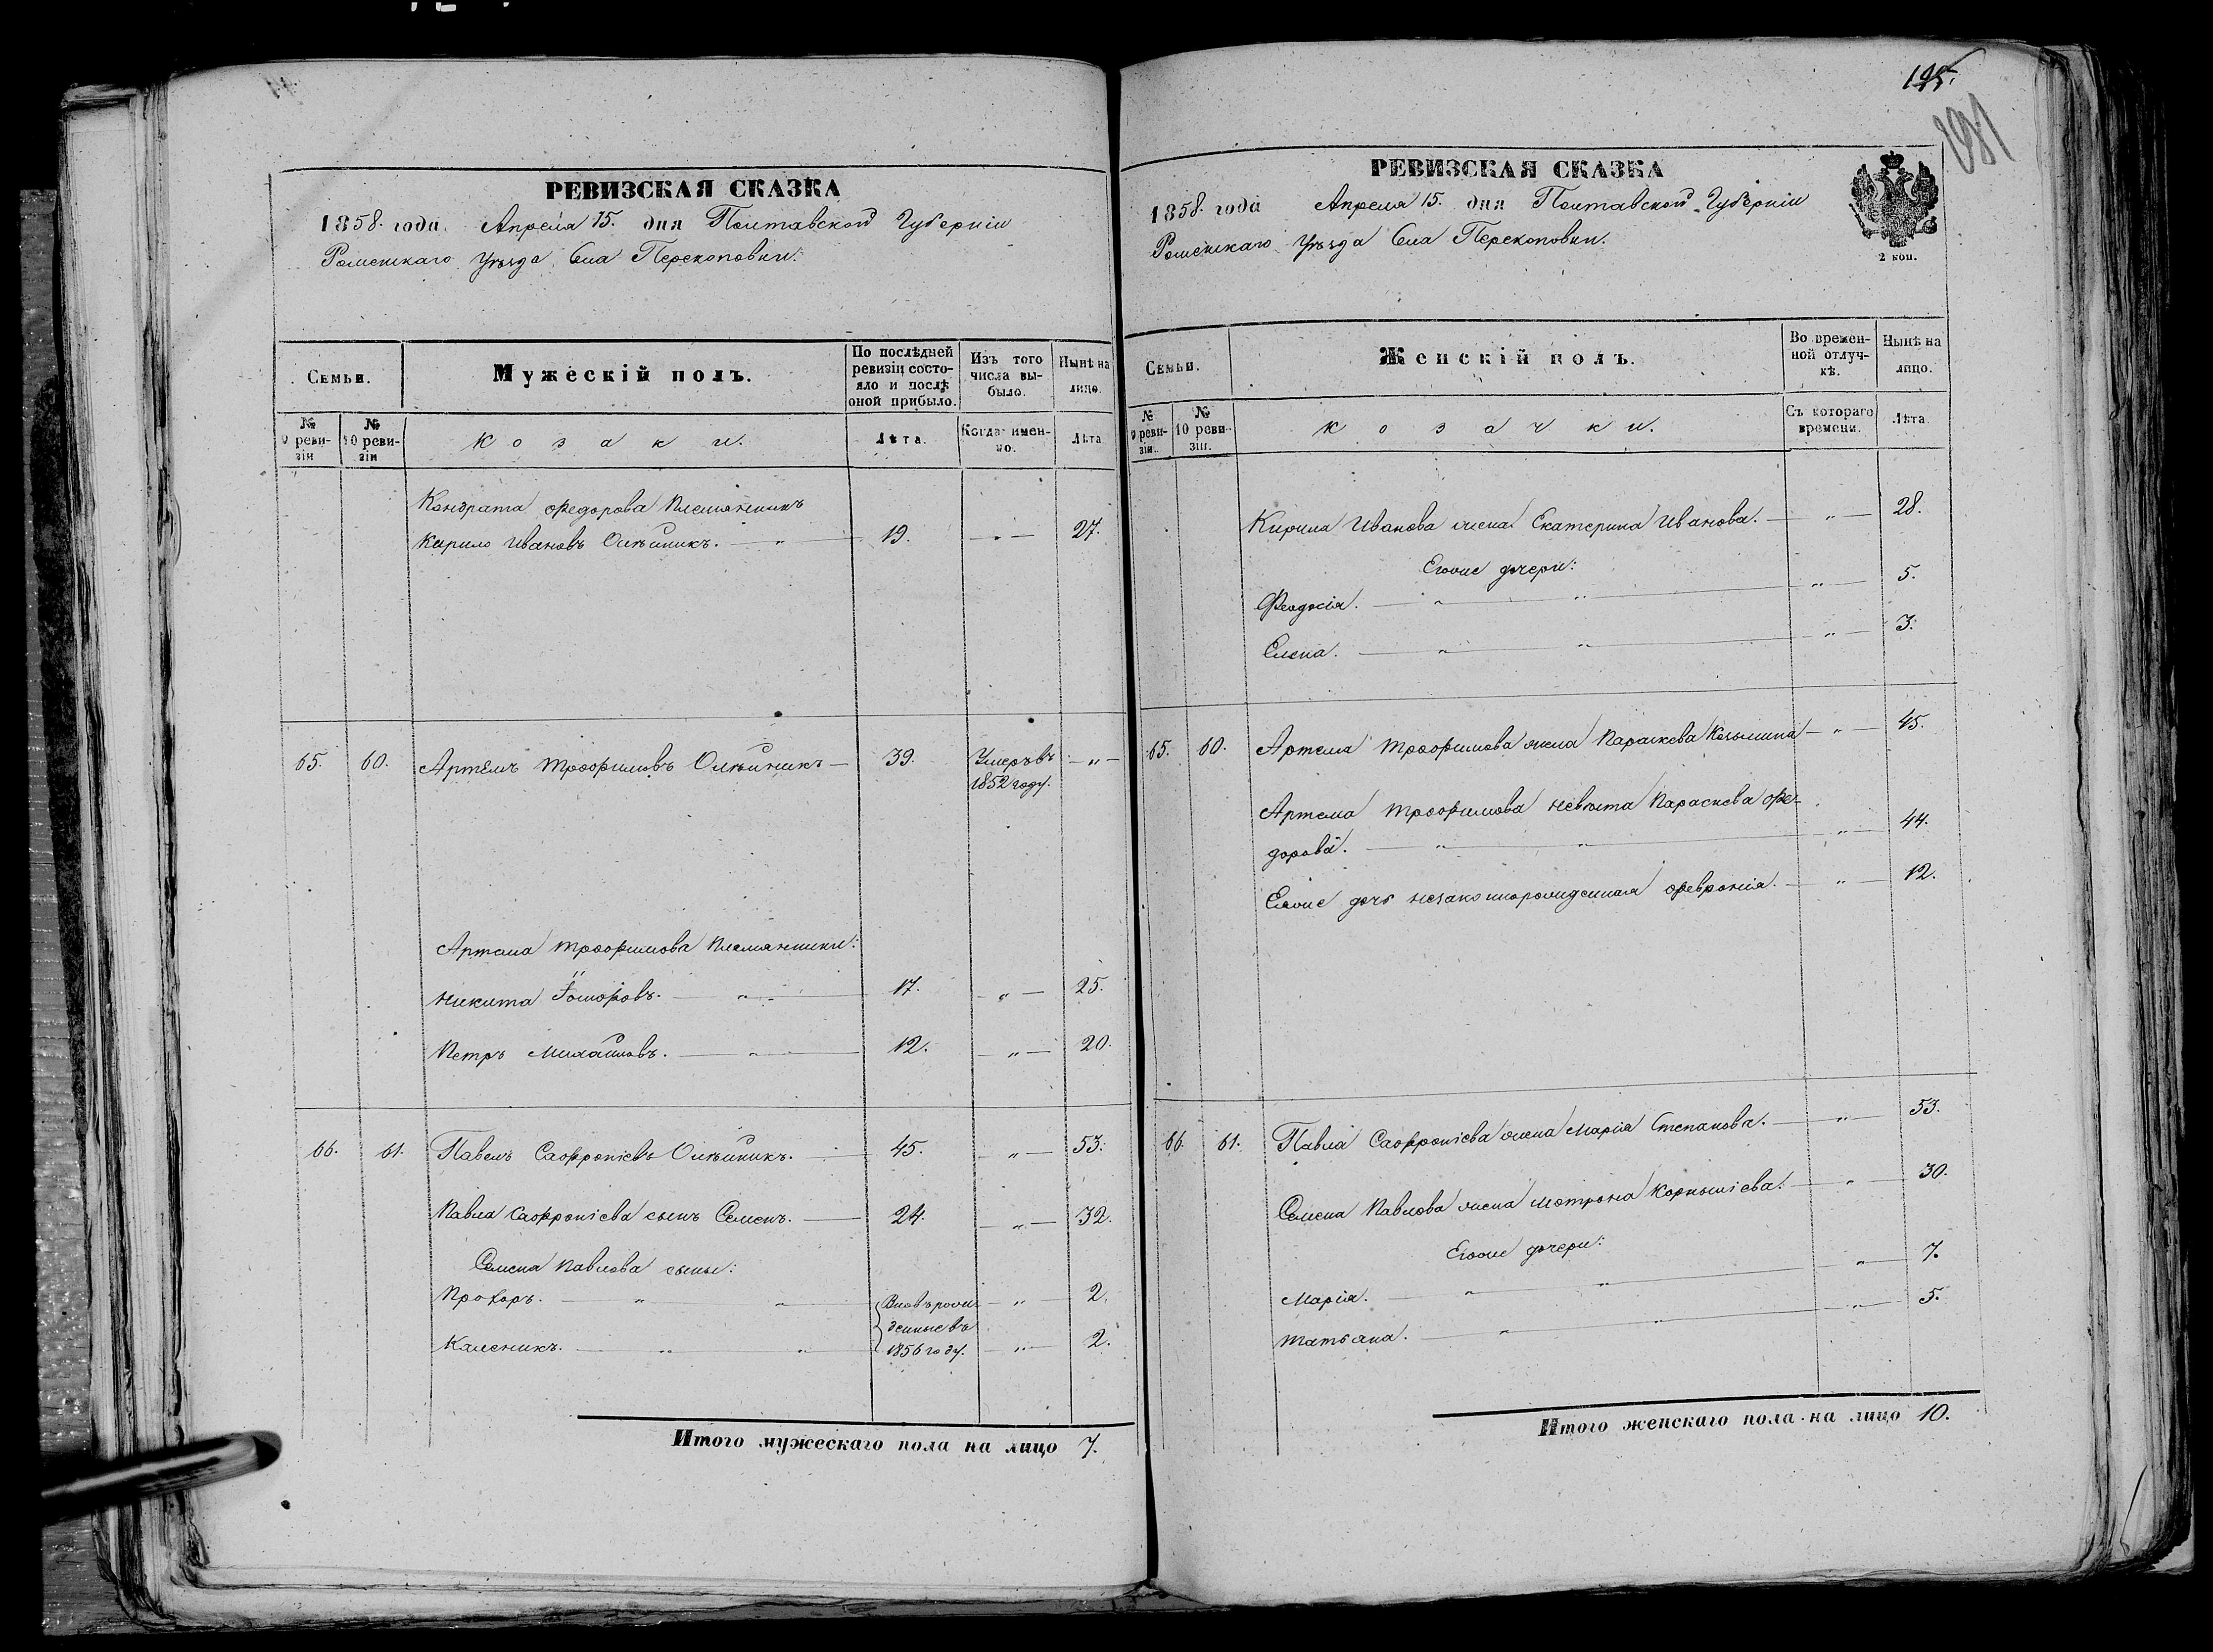 РЕВИЗСКАЯ СКАЗКА
1858. года. Апреля 15. дня Полтавской Губерніи
Роменскаго Уѣзда Села Перекоповки.
Семьи.
Мужескій полъ.
По послѣдней
ревизіи состо-
яло и послѣ
оной прибыло.
Изъ того
числа вы-
было.
Нынѣ на
лицо.
№
9 реви-
зіи
№
10 реви-
зіи
Козаки.
Лѣта.
Когда имен-
но.
Лѣта
Кондрата Федорова племянникъ
Кирило Ивановъ Олѣйникъ. — " — 19. — " — 27.
65. 60. Артемъ Трофимовъ Олѣйникъ — 39. Умеръ въ — " —
1852 году.
Артема Трофимова племянники:
Никита — " — 17. — " — 25.
Петръ Михайловъ. — " — 12. — " — 20.
66. 61. Павелъ Софроніевъ Олѣйникъ. — 45. — " — 53.
Павла Софроніева сынъ Семенъ. — 24. — " — 32.
Семена Павлова сыны:
Прохоръ. — " — " — Вновь рож- — " — 2.
денные въ
Каленикъ. — " — " — 1856 году. — " — 2.
Итого мужескаго пола на лицо 7.
195.
181
РЕВИЗСКАЯ СКАЗКА
1858. года Апреля 15. дня Полтавской Губерніи
Роменскаго Уѣзда Села Перекоповки.
2 коп.
Семьи.
Женскій полъ.
Во времен-
ной отлуч-
кѣ.
Нынѣ на
лицо.
№
9 реви-
зіи.
№
10 реви-
зіи.
Козачки.
Съ котораго
времени.
Лѣта
Кирила Иванова жена Екатерина Иванова. — " — 28.
Егоже дочери:
Феодосія. — " — " — " — 5.
Елена. — " — " — " — 3.
65. 60. Артема Трофимова жена Параскева Козьмина — " — 45.
Артема Трофимова невѣста Параскева Фе-
дорова. — " — " — " — 44.
Еяже дочь незаконнорожденная Февронія. — " — 12.
66. 61. Павла Софроніева жена Марія Степанова. — " — 53.
Семена Павлова жена Мотрона Корныліева. — " — 30.
Егоже дочери:
Марія. — " — " — " — 7.
Татьяна. — " — " — " — 5.
Итого женскаго пола на лицо 10.